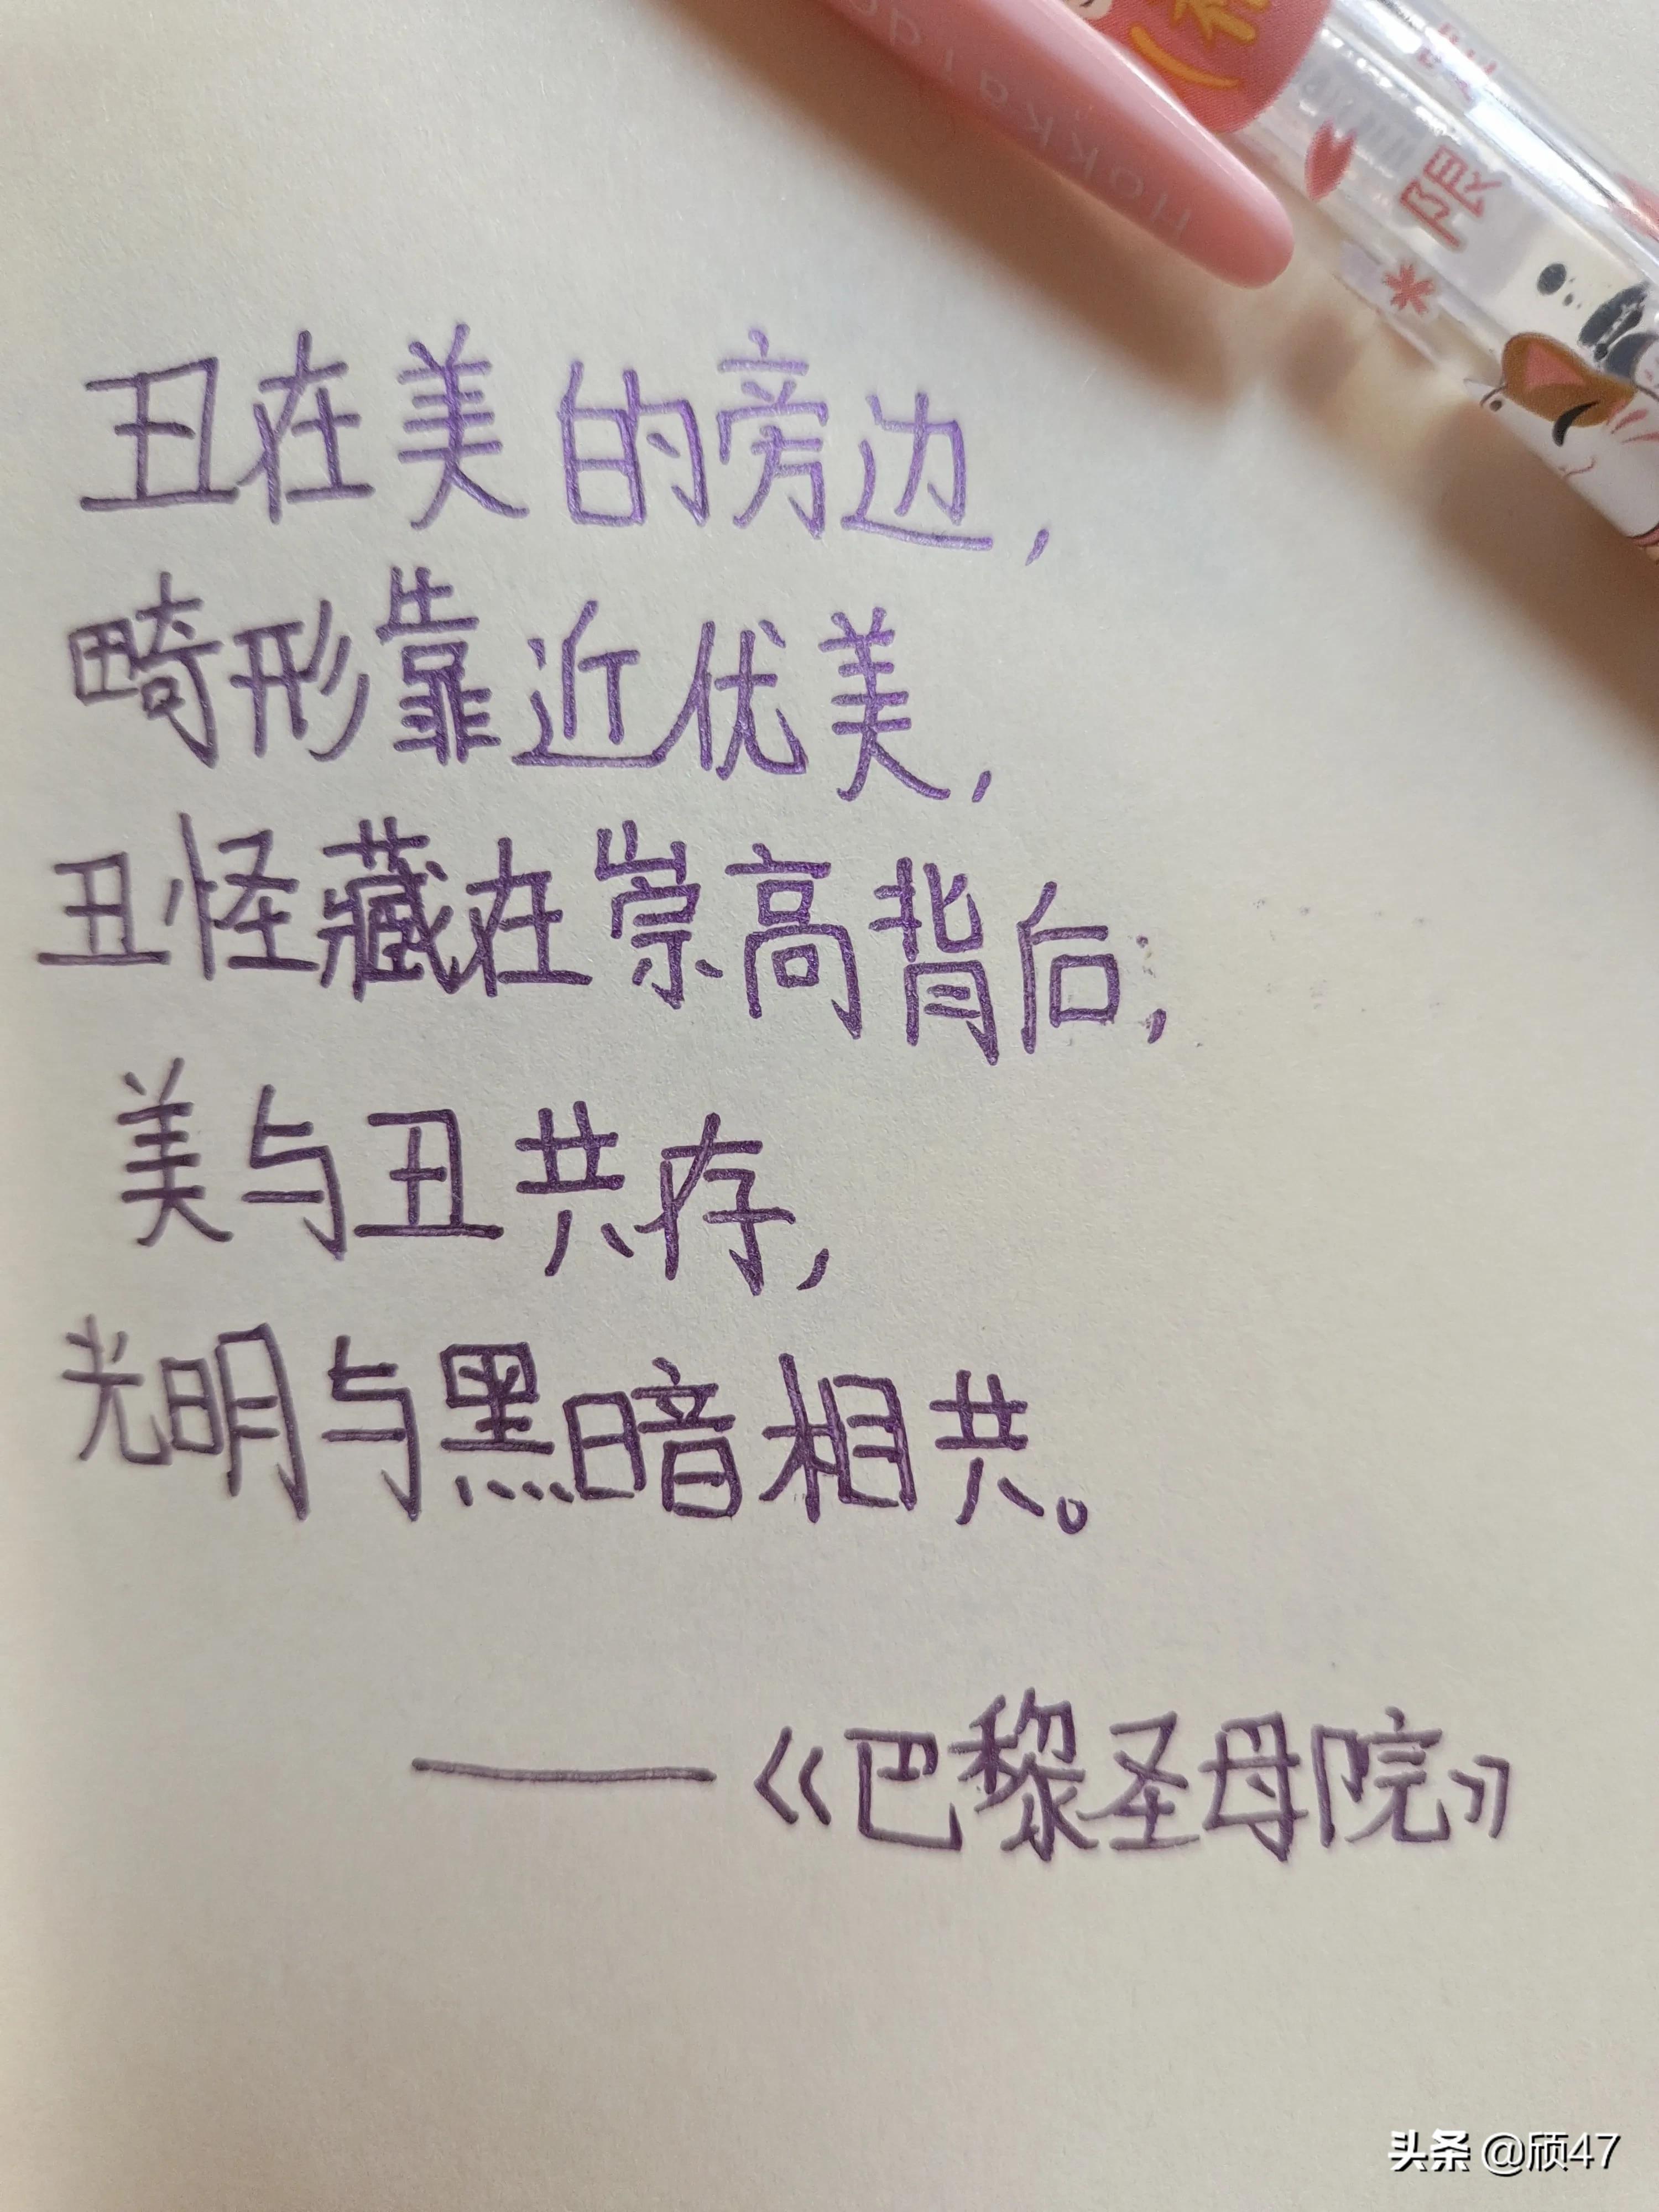 Hokkaido
限
丑在美的旁边,
畸形靠近优美,
丑怪藏在崇高背后,
美与丑共存,
光明与黑暗相共。
——《巴黎圣母院》
头条 @颀47